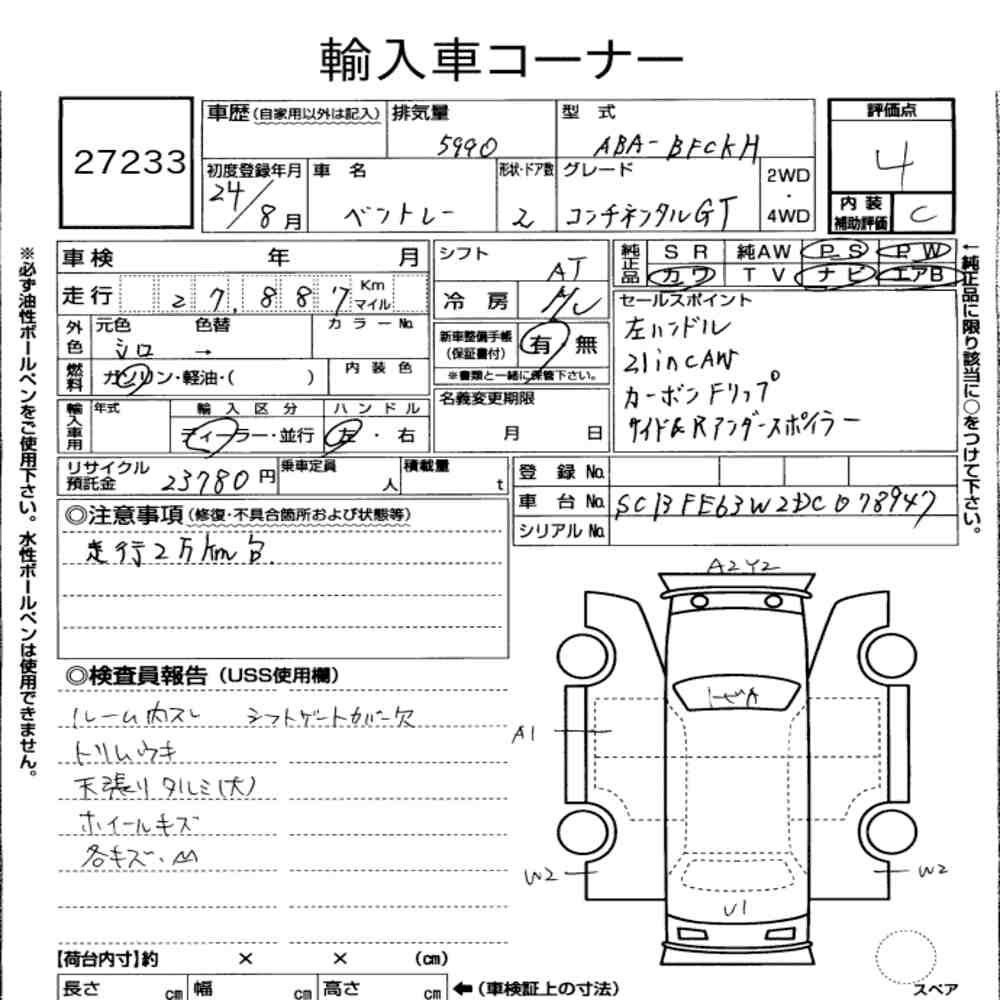 輸入車コーナー
27233
車歴(自家用以外は記入)
排気量 5990
型 式 ABA-BFCKH
評価点 4
初度登録年月 24/8月
車 名 ベントレー
形状・ドア数 2
グレード コンチネンタルGT
2WD・4WD
内装補助評価 C
車検 年 月
走行 27,887 Km マイル
外色 元色 シロ 色替 → カラーNo.
燃料 ガソリン・軽油・( ) 内装色
輸入車用 年式 輸入区分 ディーラー・並行 ハンドル 左・右
シフト AT
冷房
新車整備手帳(保証書付) 有 無
※書類と一緒に保管下さい。
名義変更期限 月 日
純正品 SR 純AW PS PW
カワ TV ナビ エアB
セールスポイント
左ハンドル
21inCAW
カーボンFリップ
サイド&Rアンダースポイラー
←純正品に限り該当に○をつけて下さい。
※必ず油性ボールペンをご使用下さい。水性ボールペンは使用できません。
リサイクル預託金 23780円
乗車定員 人
積載量 t
登録No.
車台No. SCBFE63W2DC078947
シリアルNo.
◎注意事項(修復・不具合箇所および状態等)
走行2万Km台
◎検査員報告(USS使用欄)
ルーム内スレ シフトゲートカバー欠
トリムウキ
天張りタルミ(大)
ホイールキズ
各キズ・
A2Y2
A1
W2
W2
U1
【荷台内寸】約 × × (cm)
長さ cm 幅 cm 高さ cm ←(車検証上の寸法)
スペア